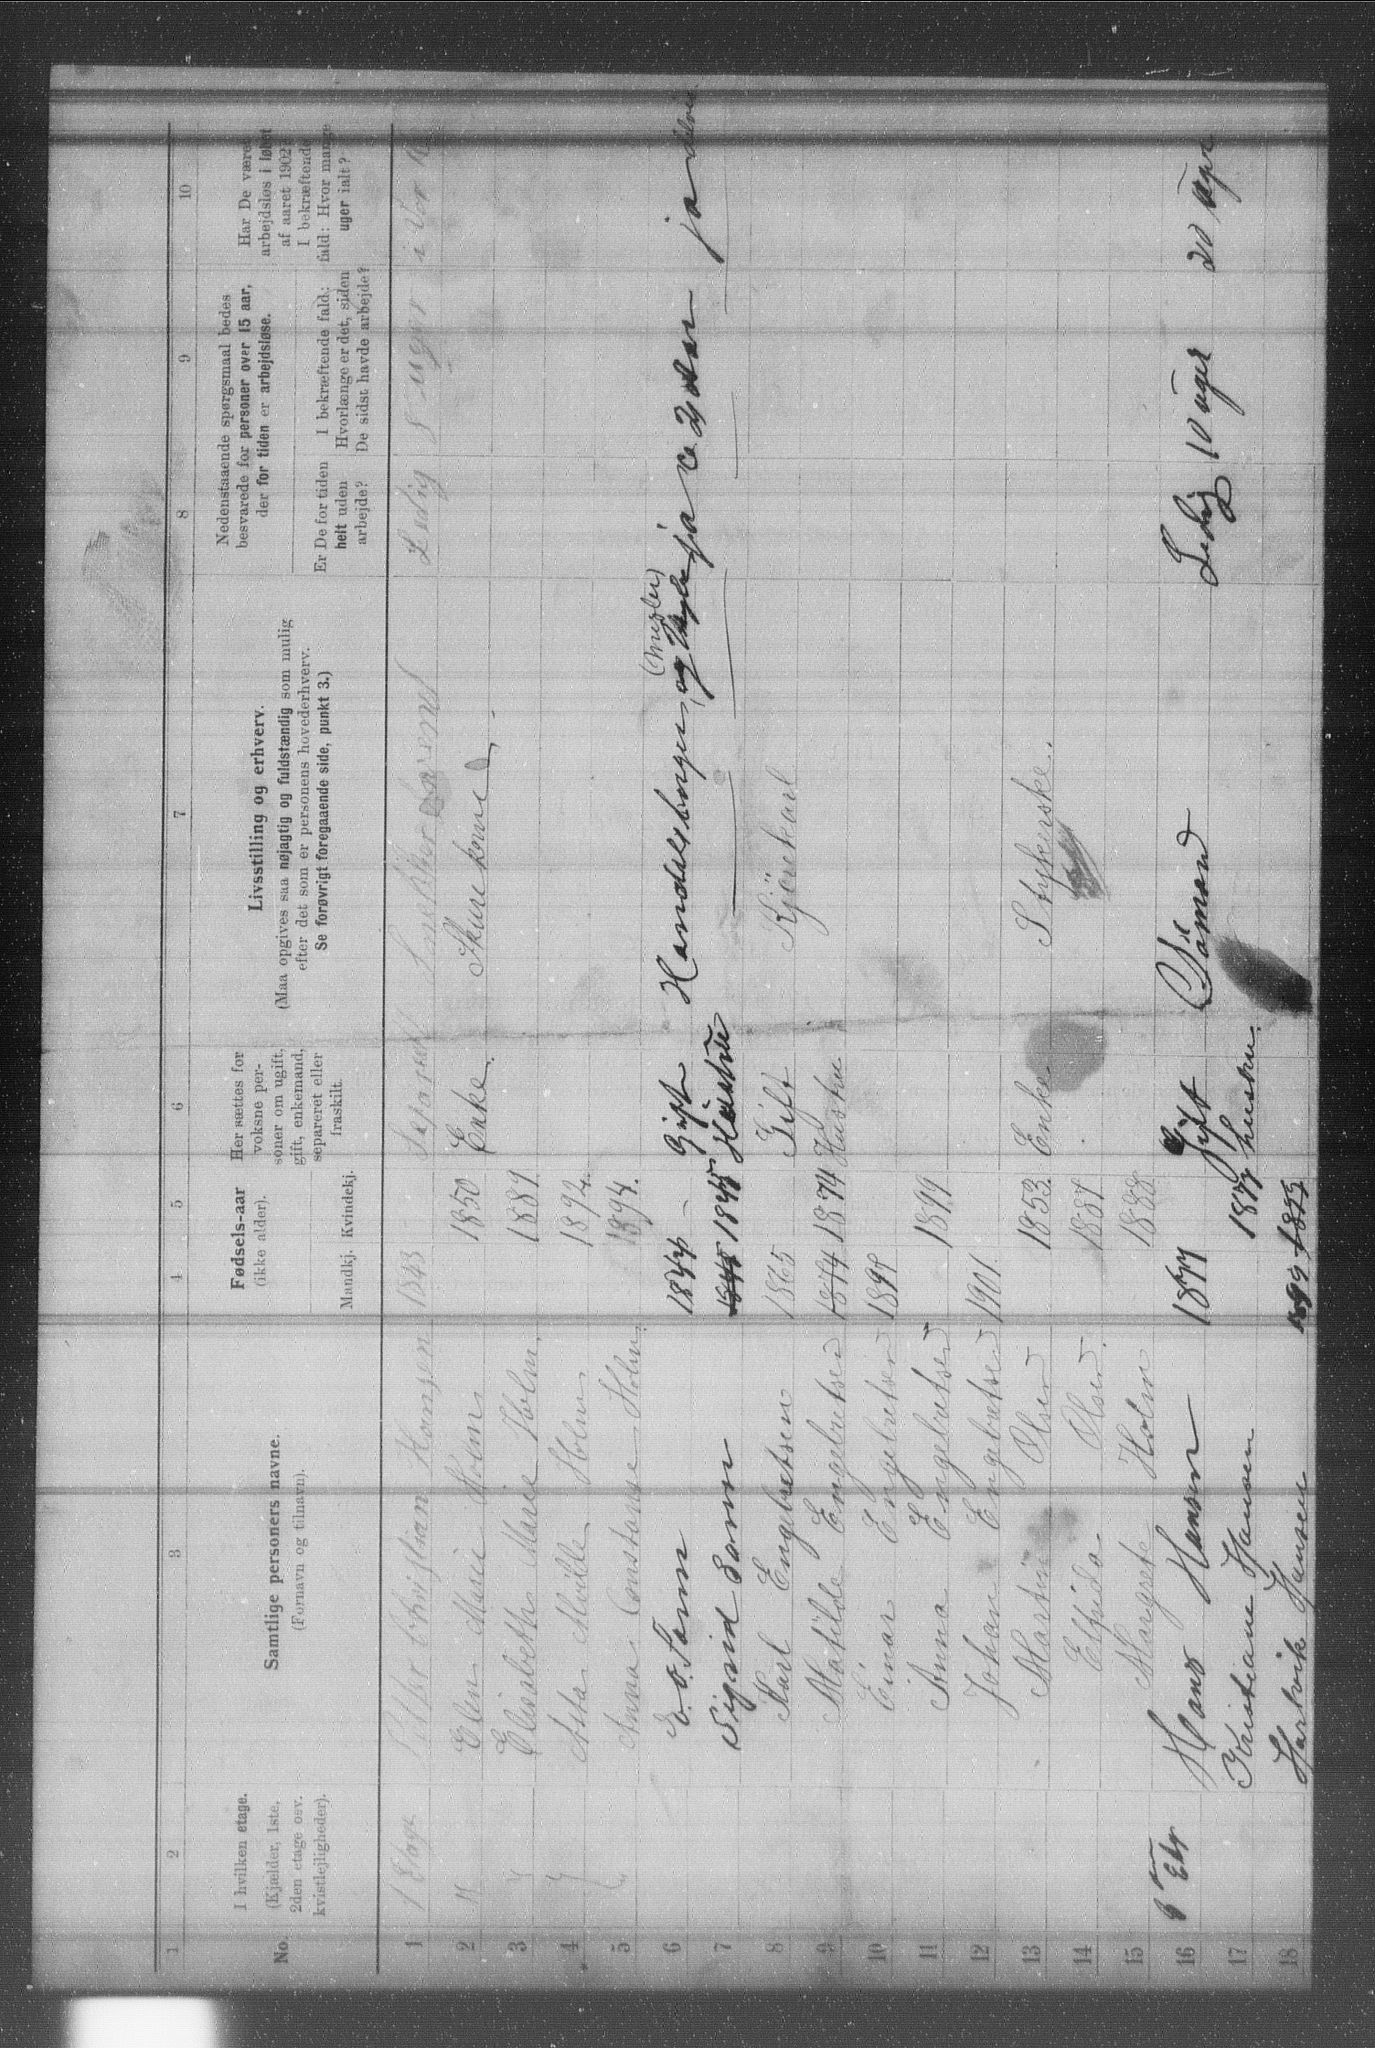 1 2 3 4 5 6 7 8 9 10
No.
I hvilken etage.
(Kjælder, 1ste,
2den etage osv.
kvistlejligheder).
Samtlige personers navne.
(Fornavn og tilnavn).
Fødsels-aar
(ikke alder).
Mandkj. Kvindekj.
Her sættes for
voksne per-
soner om ugift,
gift, enkemand,
separeret eller
fraskilt.
Livsstilling og erhverv.
(Maa opgives saa nøjagtig og fuldstændig som mulig
efter det som er personens hovederhverv.
Se forøvrigt foregaaende side, punkt 3.)
Nedenstaaende spørgsmaal bedes
besvarede for personer over 15 aar,
der for tiden er arbejdsløse.
Er De for tiden
helt uden
arbejde?
I bekræftende fald:
Hvorlænge er det, siden
De sidst havde arbejde?
Har De været
arbejdsløs i løbet
af aaret 1902?
I bekræftende
fald: Hvor mange
uger ialt?
1 1 Etage Christian Hansen 1843 Ledig 8 uger
2 Elen Marie Holm 1850 Enke. Skurekone
3 Elisabeth Marie Holm. 1887.
4 Asta Holm 1892.
5 Anna Constanse Holm. 1894.
6 1844 Gift Handelsborger, og (Megler) ja ca 2 Aar ja
7 Sigrid 1845 Hustru
8 Karl Engebretsen 1865 Gift Kjörekarl
9 Matilde Engebretsen 1874 1874 Hustru
10 Einar Engebretsen
11 Anna Engebretsen 1899
12 Johan Engebretsen 1901.
13 Martine Olsen 1853. Enke Strykerske.
14 Elfrida Olsen. 1887
15 Margrete Holm 1888
16 Etg Hans Hansen 1877 Gift Sömand Ledig 10 uger 20 uger
17 Kristiane Hansen 1877 hustru.
18 Hartvik Hansen